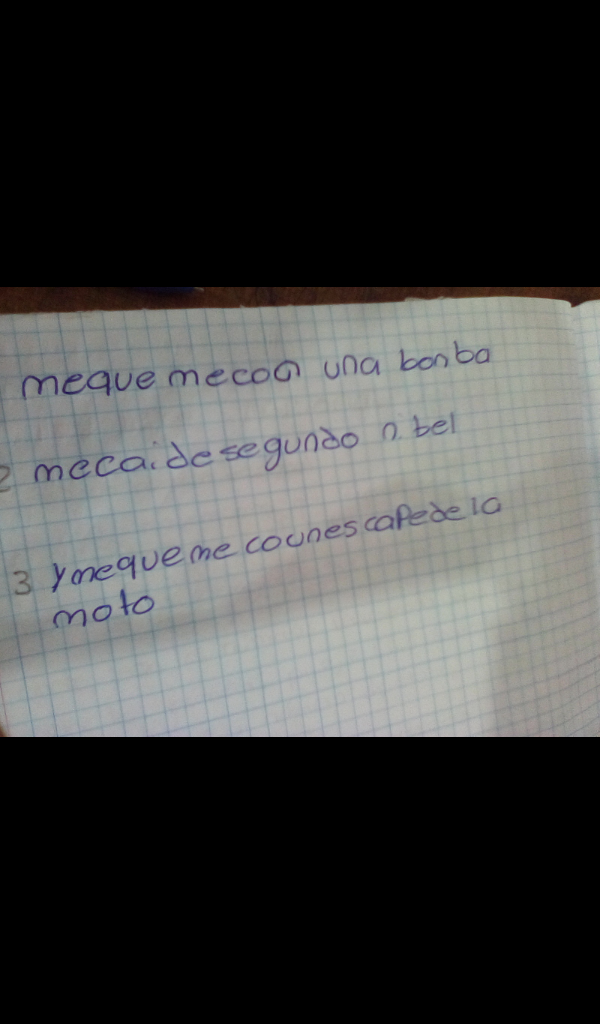 meque mecon una bonba
2 mecai de segundo nibel
3 Y meque me co unes cape de la
moto